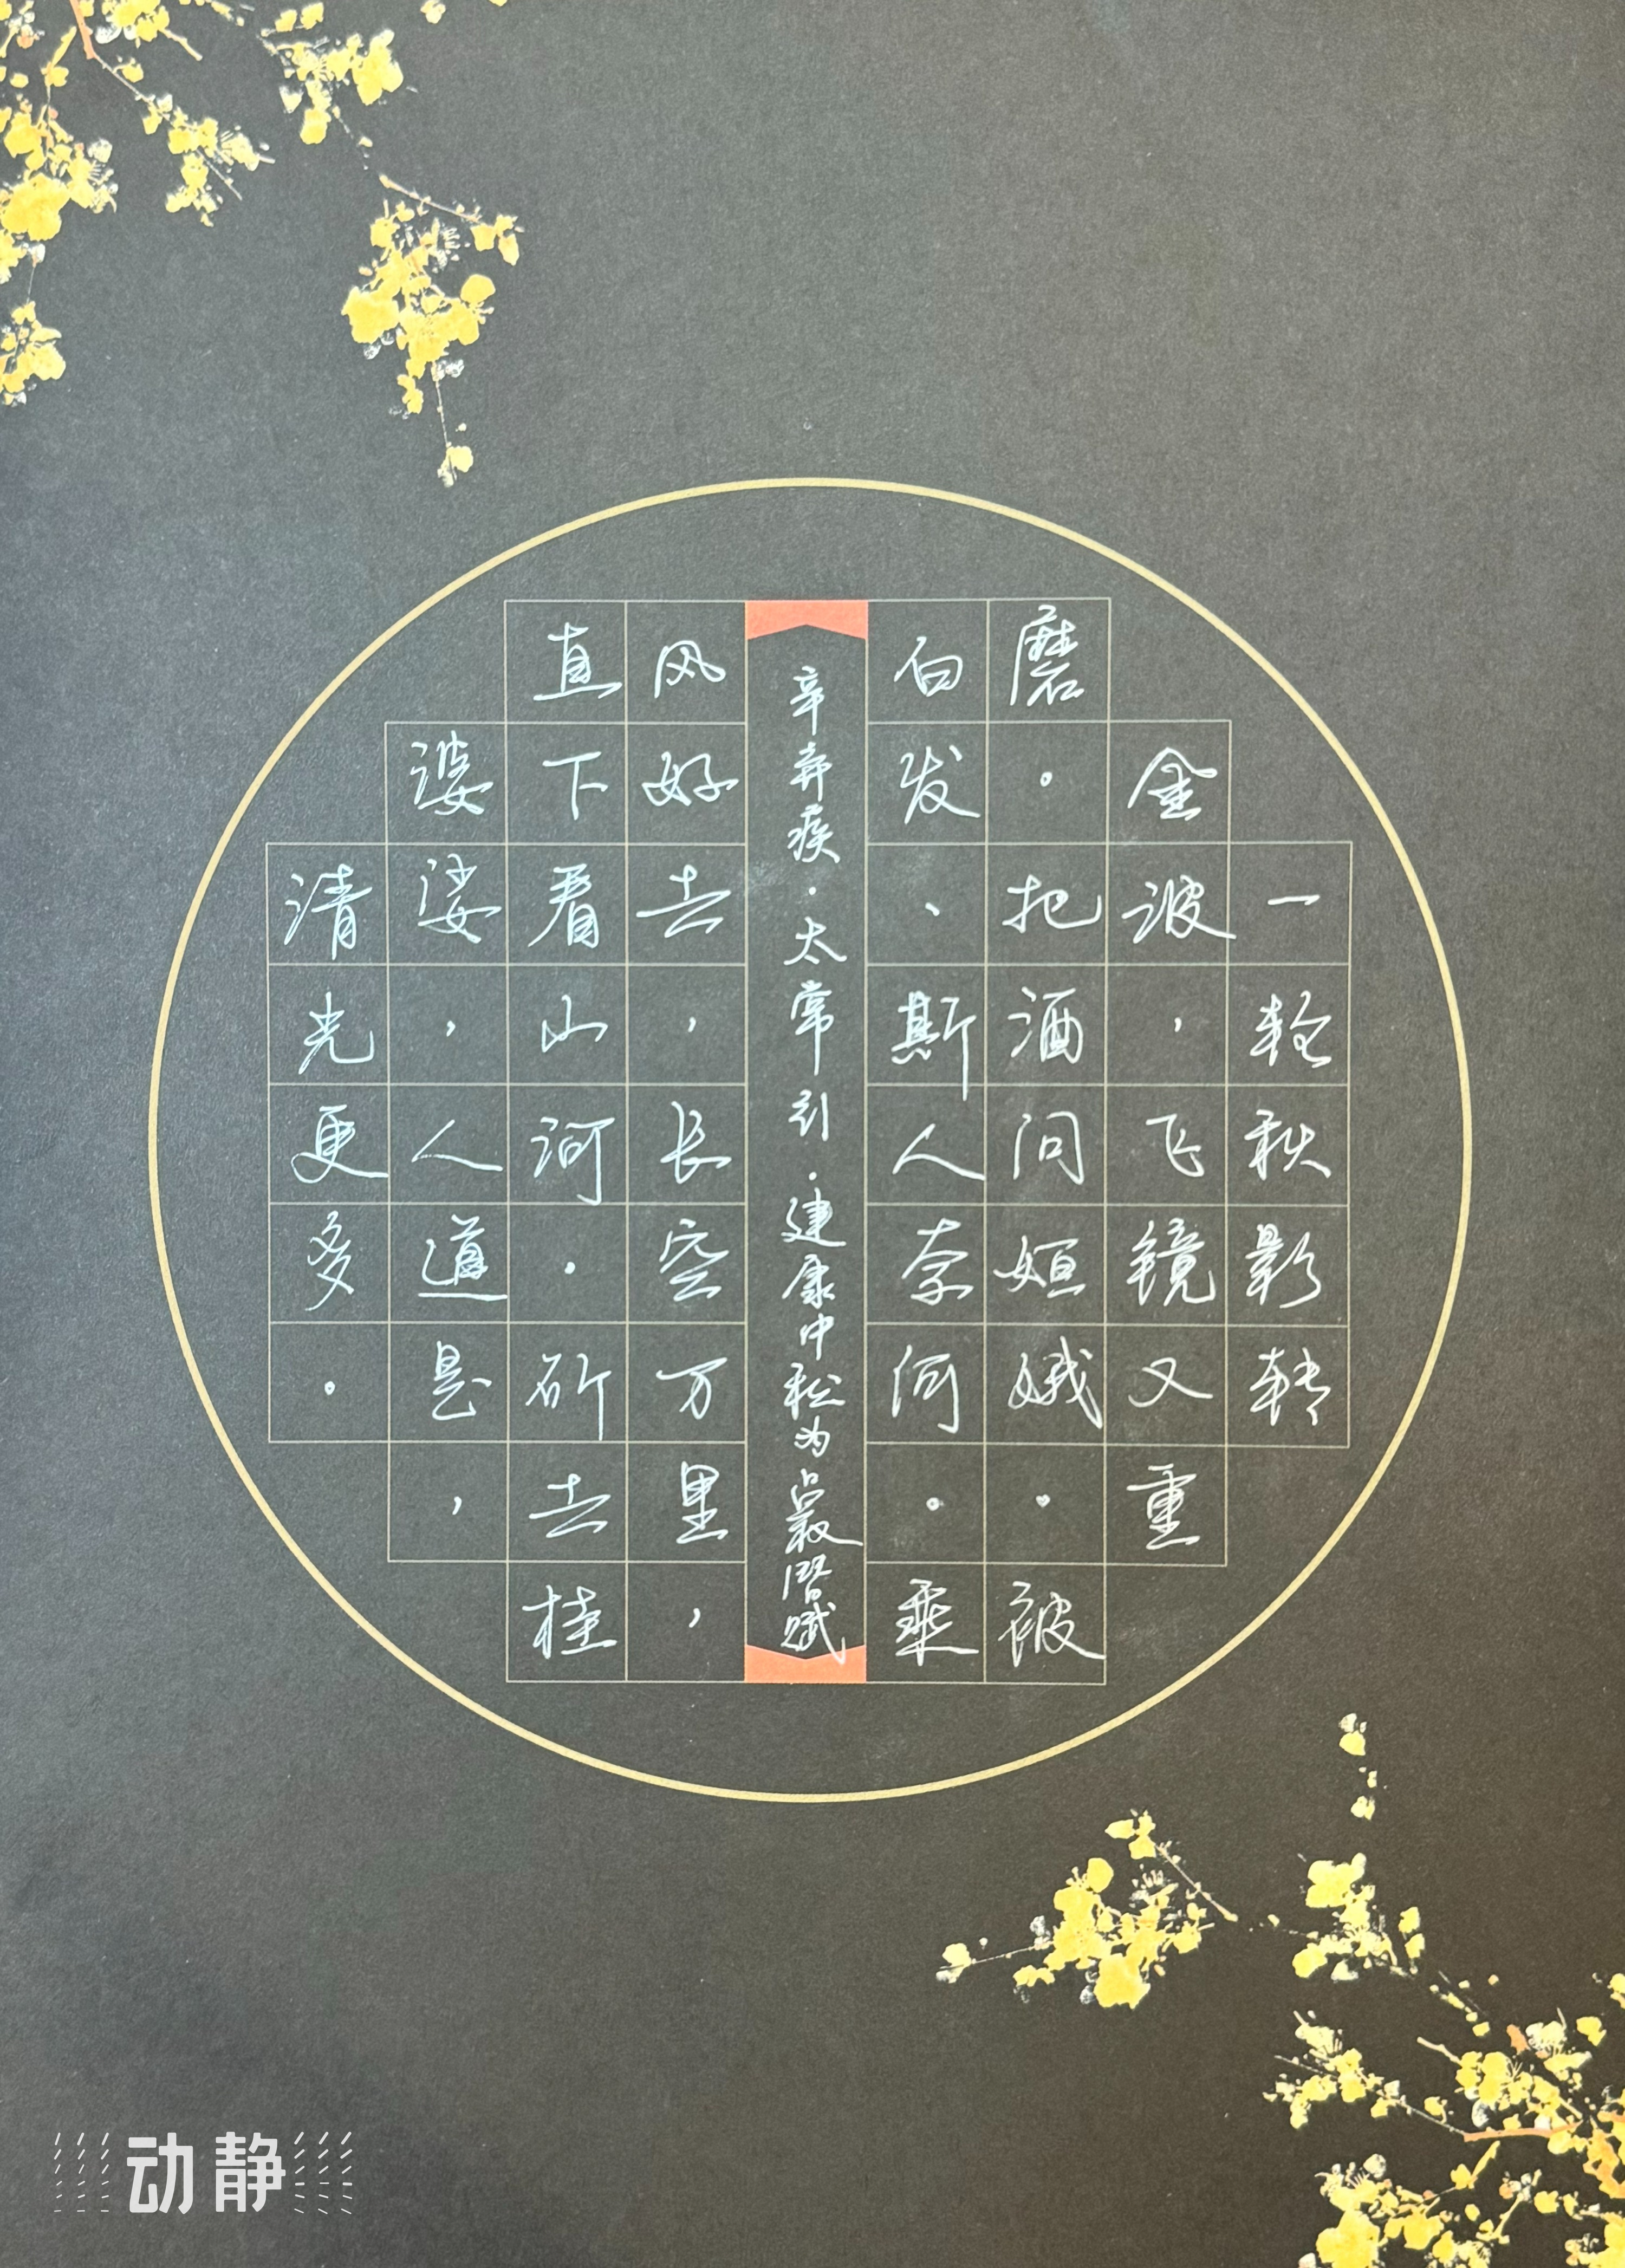 一轮秋影转
金波，飞镜又重
磨。把酒问姮娥。被
白发、斯人奈何。乘
辛弃疾·太常引·建康中秋为吕叔潜赋
风好去，长空万里，
直下看山河。斫去桂
婆娑，人道是，
清光更多。
动静